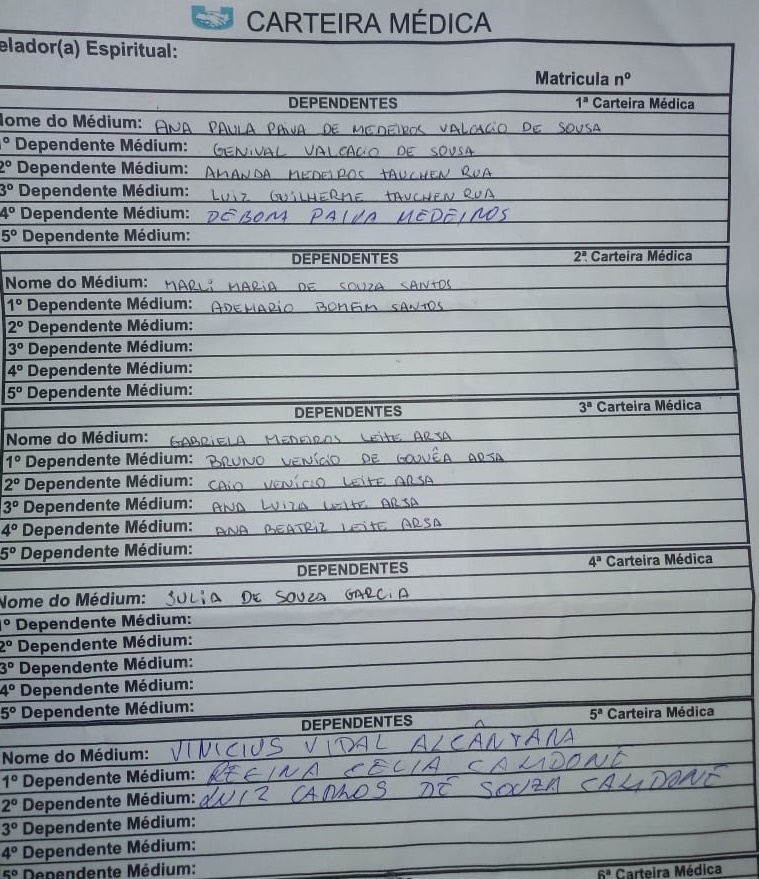 CARTEIRA MÉDICA
elador(a) Espiritual:
Matricula nº
DEPENDENTES 1ª Carteira Médica
Nome do Médium: ANA PAULA PAIVA DE MEDEIROS VALCACIO DE SOUSA
1º Dependente Médium: GENIVAL VALCACIO DE SOUSA
2º Dependente Médium: AMANDA MEDEIROS TAUCHEN RUA
3º Dependente Médium: LUIZ GUILHERME TAUCHEN RUA
4º Dependente Médium: DEBORA PAIVA MEDEIROS
5º Dependente Médium:
DEPENDENTES 2ª Carteira Médica
Nome do Médium: MARLI MARIA DE SOUZA SANTOS
1º Dependente Médium: ADEMARIO BOMFIM SANTOS
2º Dependente Médium:
3º Dependente Médium:
4º Dependente Médium:
5º Dependente Médium:
DEPENDENTES 3ª Carteira Médica
Nome do Médium: GABRIELA MEDEIROS LEITE ARSA
1º Dependente Médium: BRUNO VENÍCIO DE GOUVÊA ARSA
2º Dependente Médium: CAIO VENÍCIO LEITE ARSA
3º Dependente Médium: ANA LUIZA LEITE ARSA
4º Dependente Médium: ANA BEATRIZ LEITE ARSA
5º Dependente Médium:
DEPENDENTES 4ª Carteira Médica
Nome do Médium: JULIA DE SOUZA GARCIA
1º Dependente Médium:
2º Dependente Médium:
3º Dependente Médium:
4º Dependente Médium:
5º Dependente Médium:
DEPENDENTES 5ª Carteira Médica
Nome do Médium: VINICIUS VIDAL ALCÂNTARA
1º Dependente Médium: REGINA CELIA
2º Dependente Médium: LUIZ CARLOS DE SOUZA
3º Dependente Médium:
4º Dependente Médium:
5º Dependente Médium:
6ª Carteira Médica